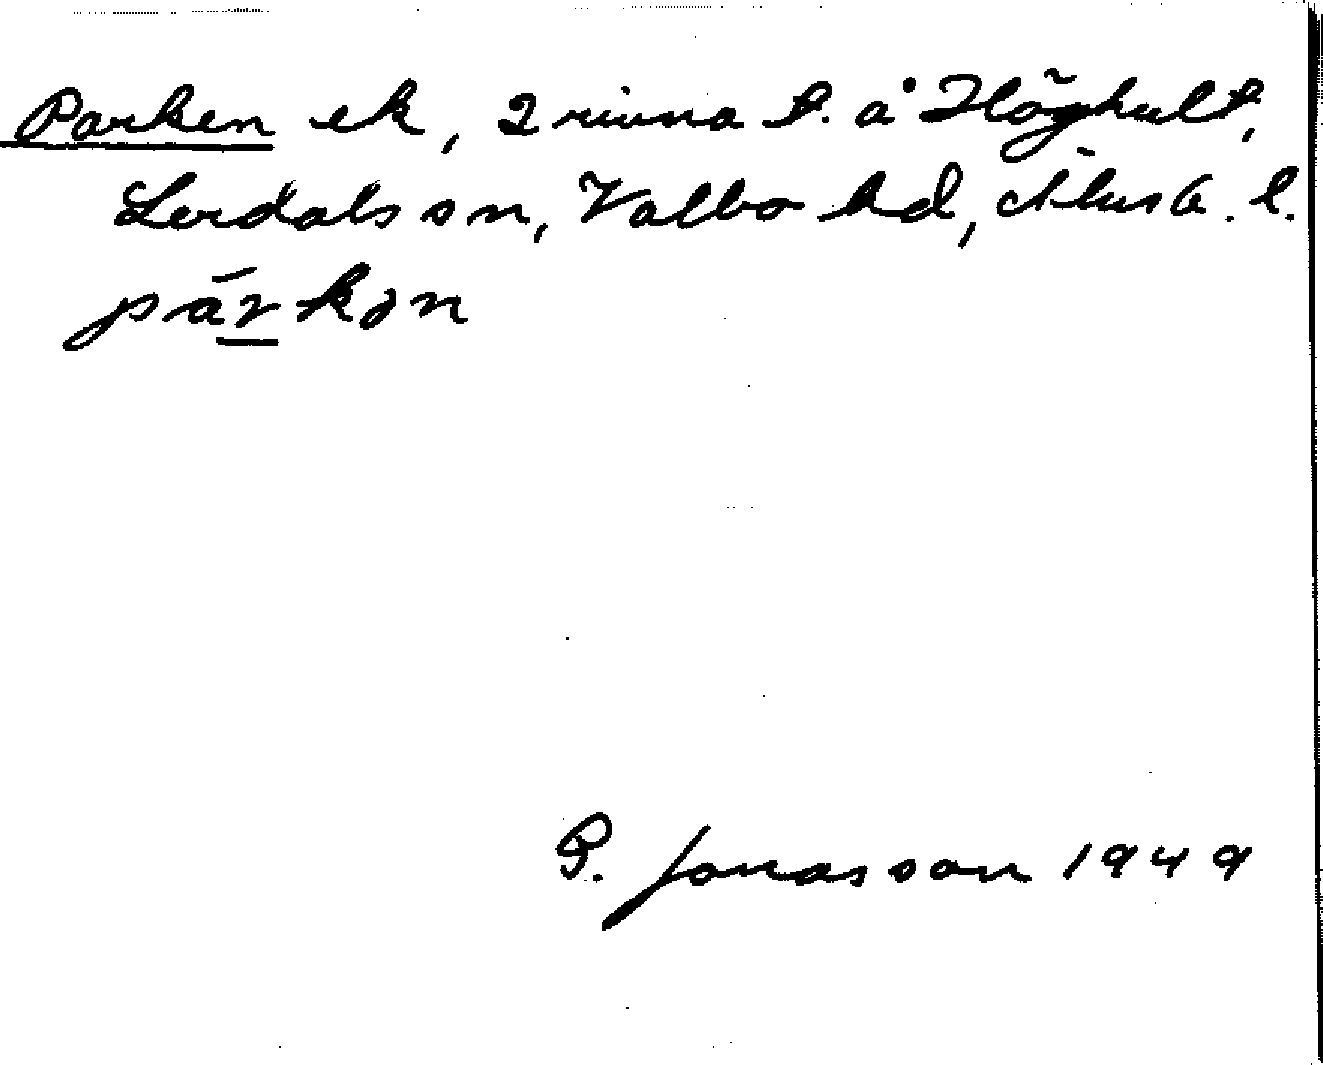 Parken ek, 2 rivna t. å Höghult,
Lerdals sn, Valbo hd, Älvsb. l.
párkən
P. Jonasson 1949